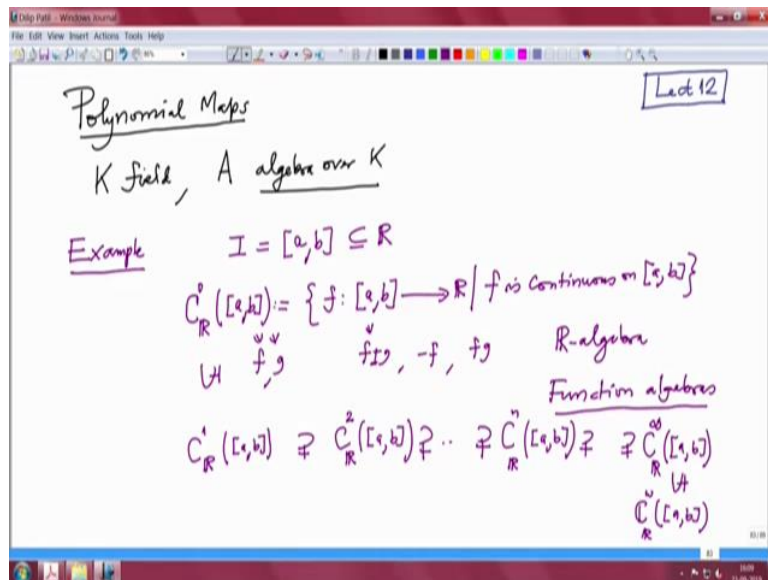 Dilip Patil - Windows Journal
File Edit View Insert Actions Tools Help
Lect 12
Polynomial Maps
K field, A algebra over K
Example I = [a,b] ⊆ ℝ
C⁰_ℝ([a,b]) := { f : [a,b] ⟶ ℝ | f is continuous on [a,b] }
f, g f±g, -f, fg ℝ-algebra
Function algebras
C¹_ℝ([a,b]) ⊋ C²_ℝ([a,b]) ⊋ ·· ⊋ Cⁿ_ℝ([a,b]) ⊋ ⊋ C^∞_ℝ([a,b])
C^ω_ℝ([a,b])